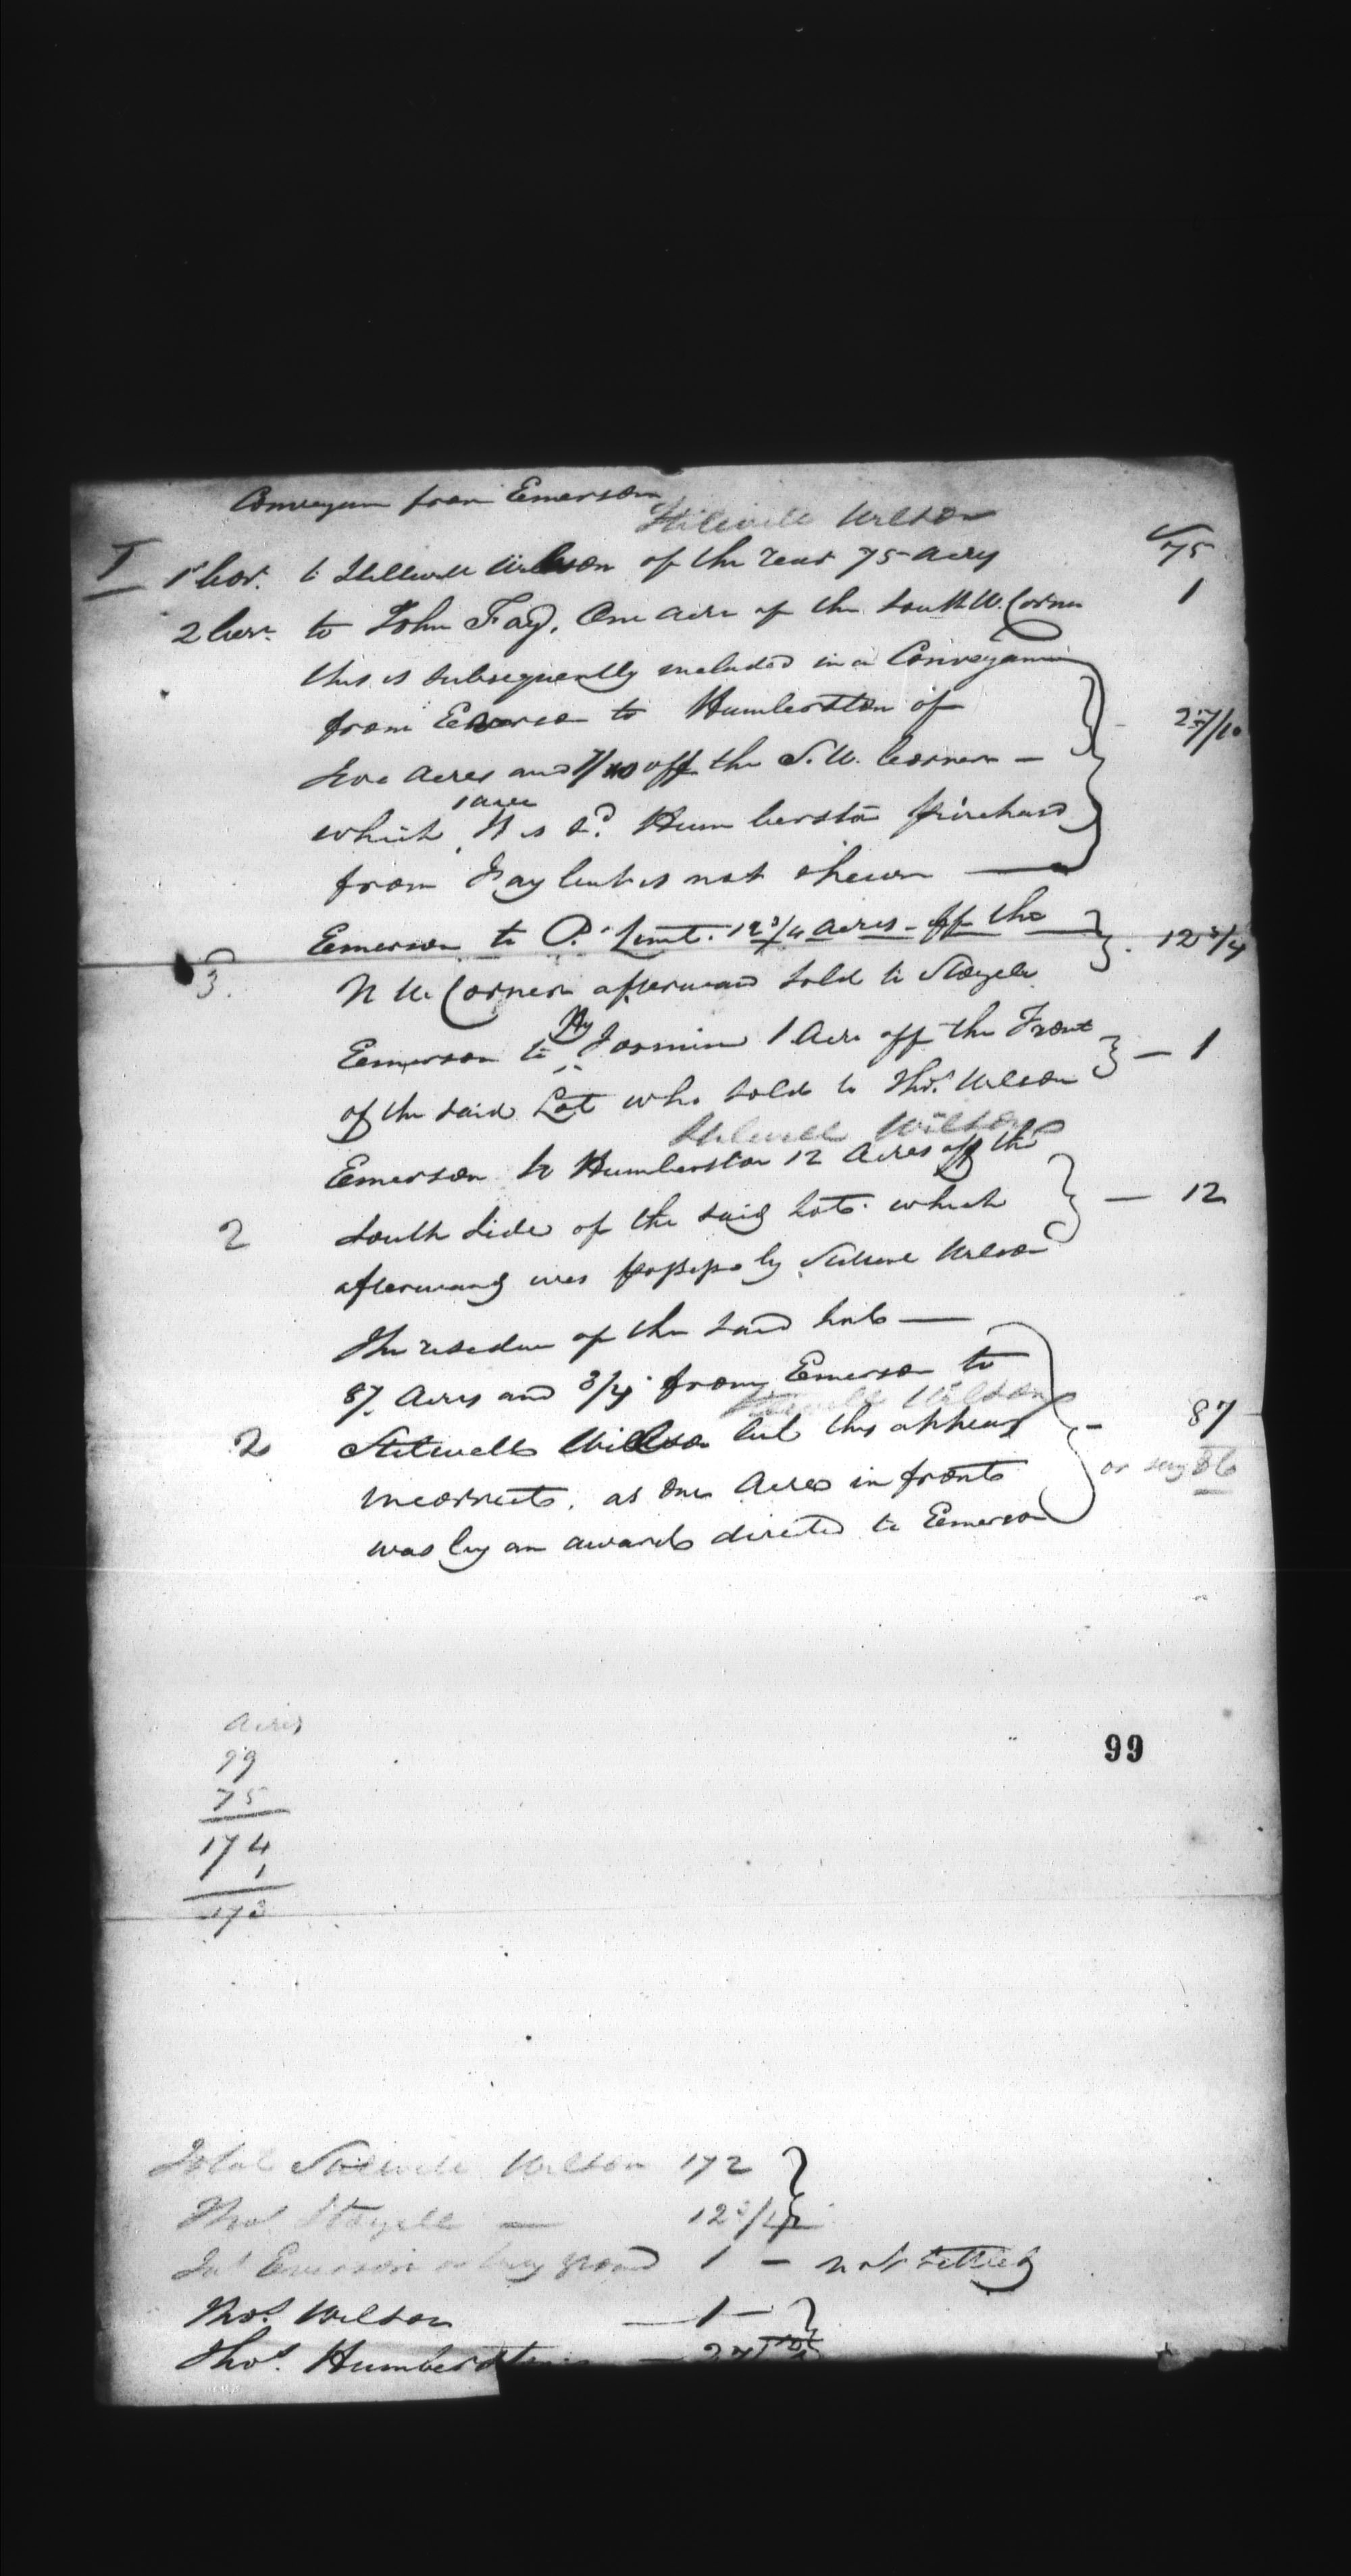 Conveyan from Emerson
Stilwell Wilson
I 1st Cor. to Stillwell Wilson of the rear 75 acres 75
2 Cor. to John Fay, One acre of the South W. Corner 1
this is subsequently included in a Conveyance
from Emerson to Humberston of 2 7/10
two acres and 7/10 off the S. W. Corner —
1 acre
which it is sd. Humberston purchased
from Fay but is not shewn —
Emerson to P. Lent. 12 3/4 acres off the 12 3/4
3. N W Corner afterward sold to Stoyell
Hy
Emerson to Jasmin 1 Acre off the Front — 1
of the said Lot who sold to Thos. Wilson
Stilwell Wilson
Emerson to Humberston 12 Acres off the
2 South Side of the said Lot which — 12
afterward was possess by Stilwell Wilson
The residue of the said Lot —
87 Acres and 3/4 from Emerson to
Stilwell Wilson
2 Stilwell Wilson but this appears — 87
incorrect, as one Acre in front or say 86
was by an award directed to Emerson
Acres
99
75
174
1
173
99
Total Stilwell Wilson 172
Thos Stoyell — 12 3/4
Emerson or bury ground 1 — not settled
Thos. Wilson — 1 —
Thos. Humberston — 2 7/10